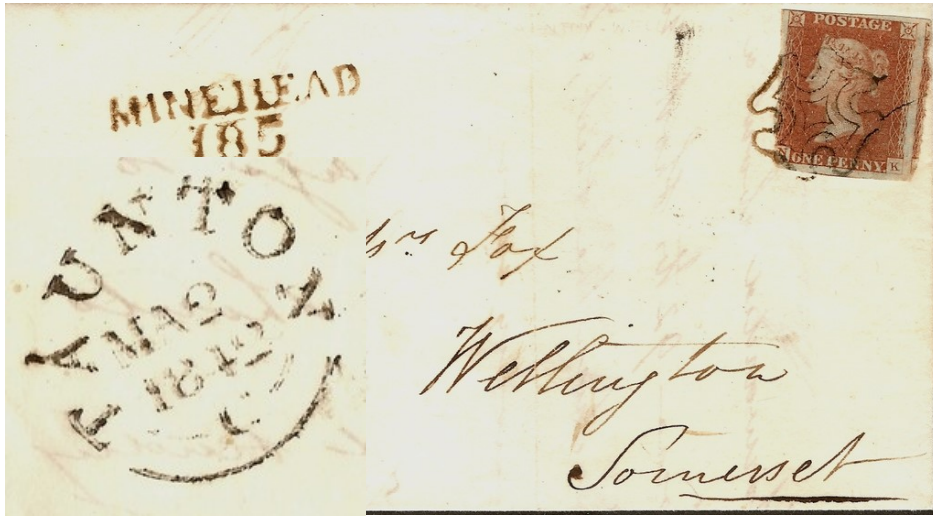 MINEHEAD
185
TAUNTON
MA 2
1842
C
POSTAGE
ONE PENNY
K
Fox
Wellington
Somerset